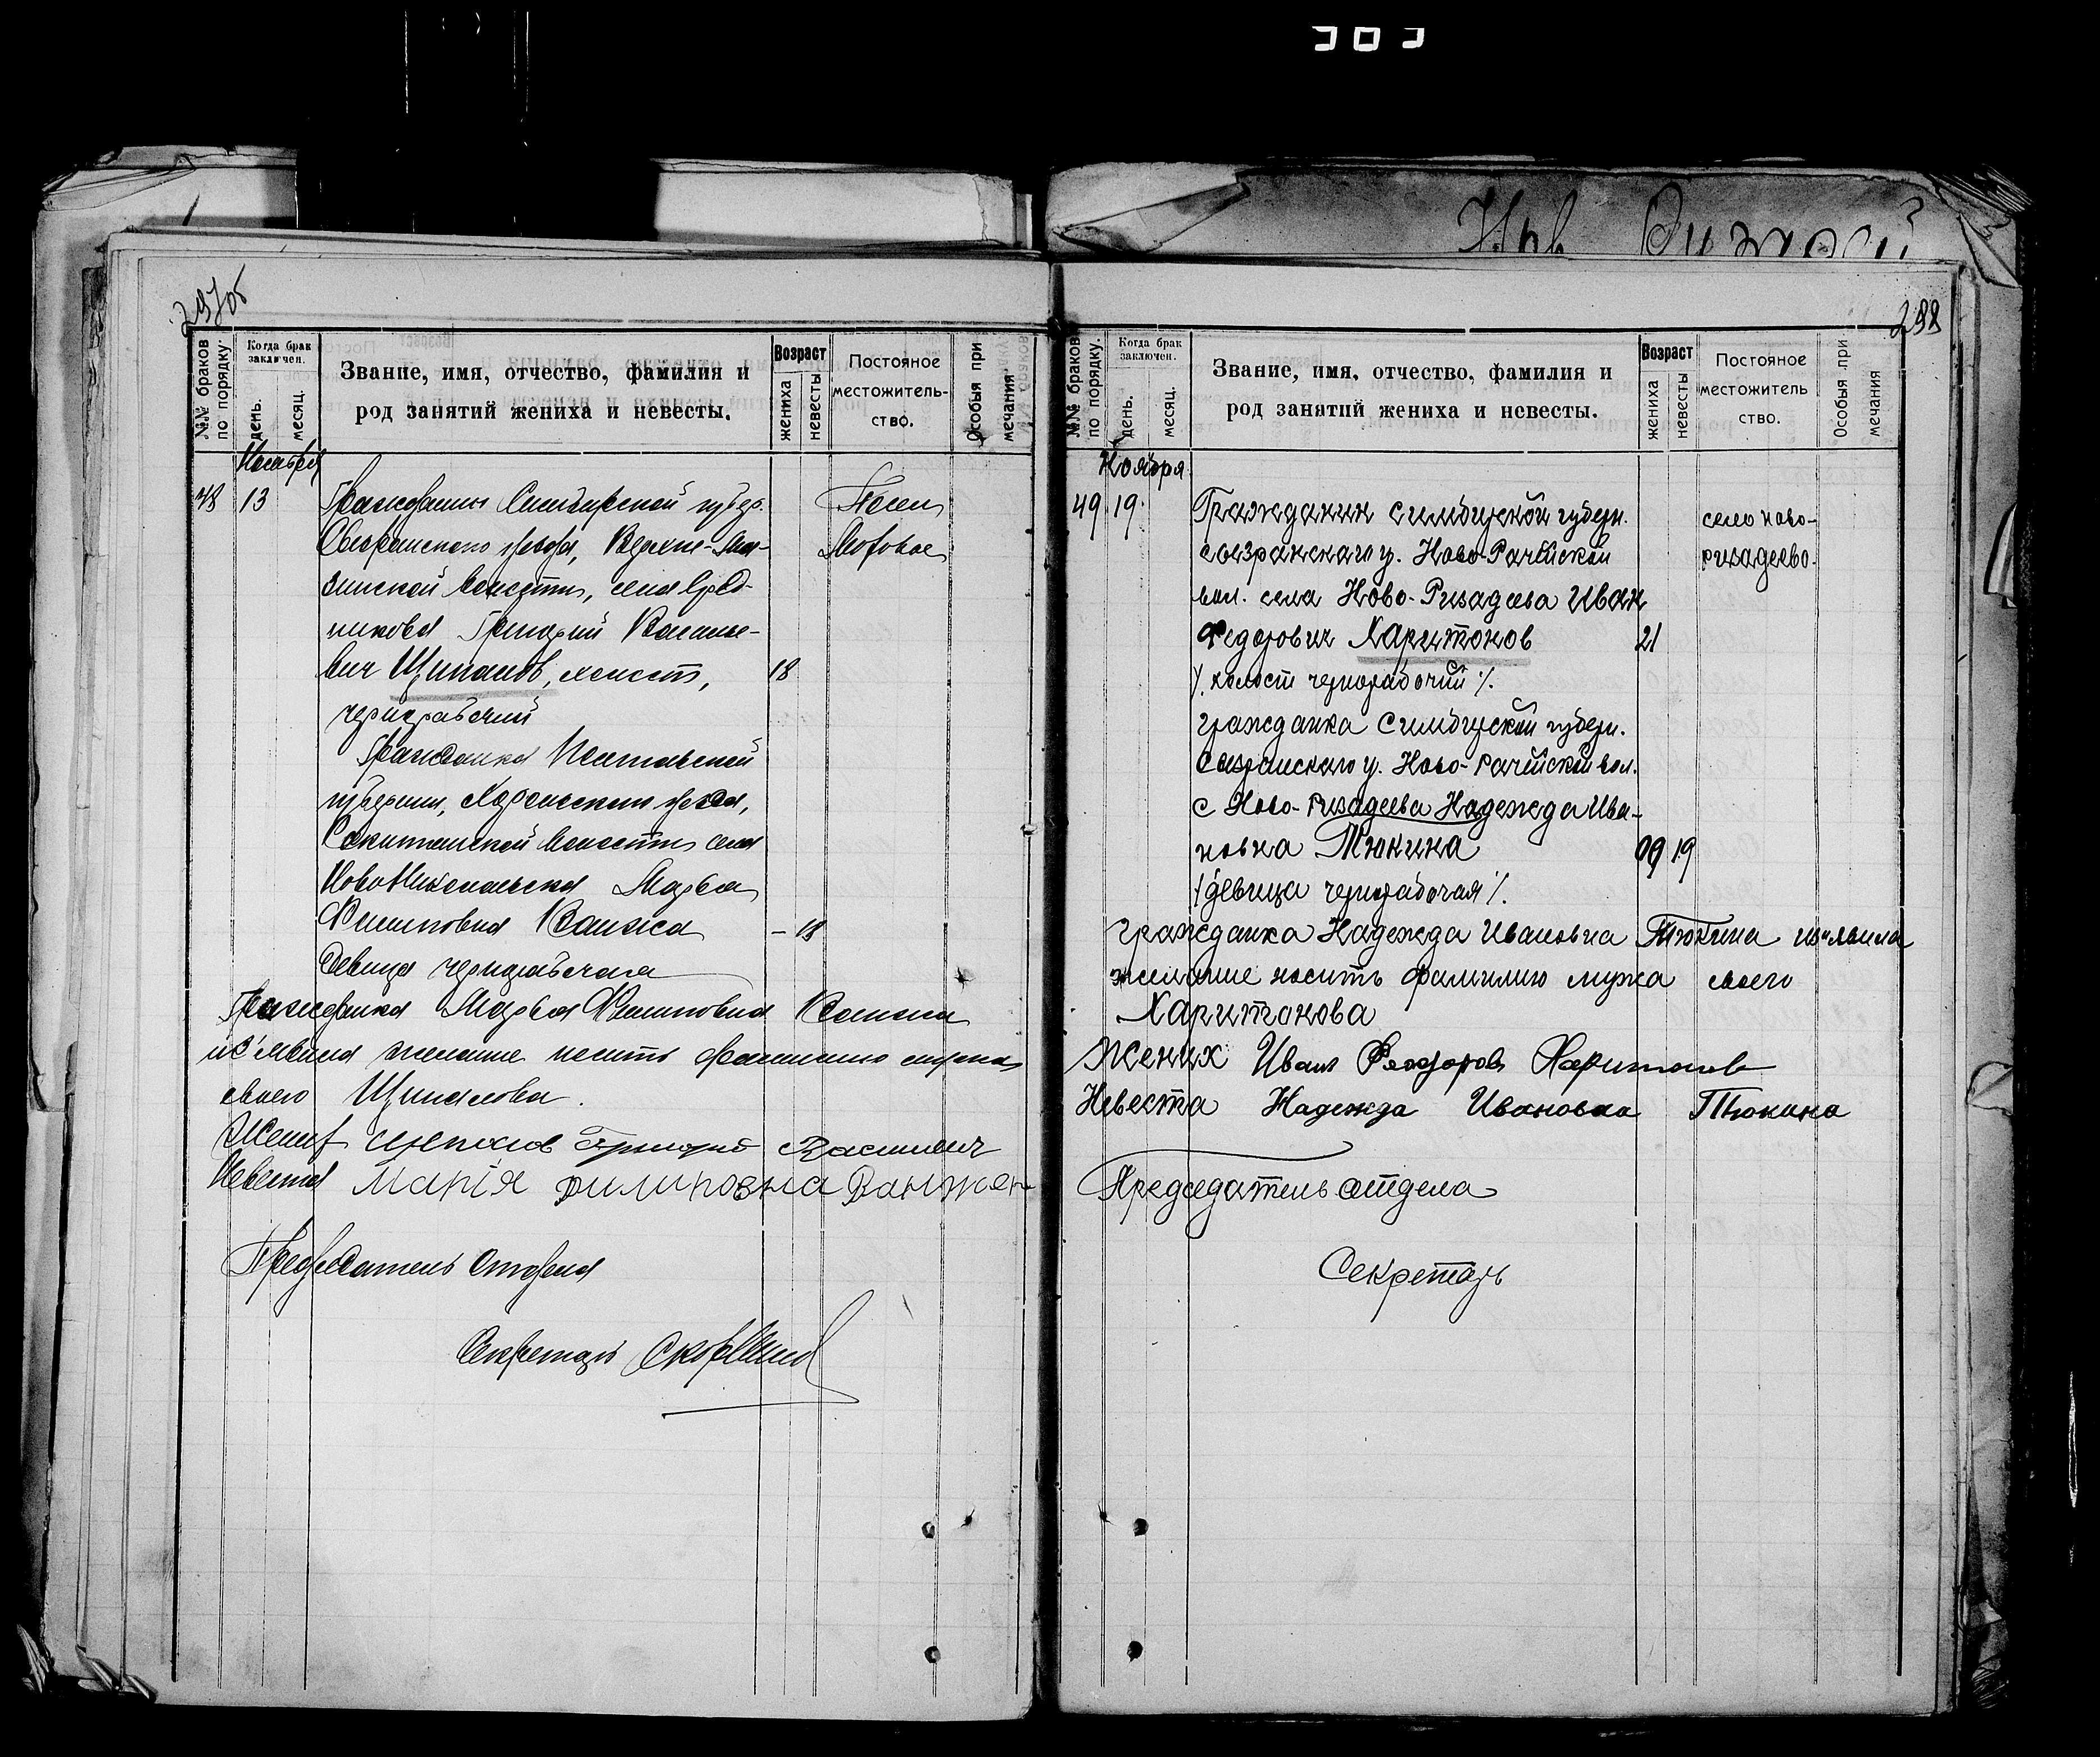 Нив
297об
№№ браков по порядку.
Когда брак заключен.
день.
месяц.
Звание, имя, отчество, фамилия и
род занятий жениха и невесты.
Возраст
жениха
невесты
Постояное
местожитель-
ство.
Особыя при
мечания
Ноября
48 13 Гражданин Симбирской губер.
Сызранского уезда, Верхне-Ма-
зинской волости, села
Григорий Василье-
вич Щипанов, холост, 18
чернорабочий
Гражданка Полтавской
губернии, уезда,
волости села
Ново Никольска Марья
Филиповна – 18
девица чернорабочая
Гражданка Марья Филиповна
из'явила желание носить фамилию мужа
своего Щипанова.
Жених Щепанов Григорий Василевич
Невеста Марія Филиповна
Председатель Отдела
Секретарь
298
№№ браков по порядку.
Когда брак заключен.
день.
месяц.
Звание, имя, отчество, фамилия и
род занятий жениха и невесты.
Возраст
жениха
невесты
Постояное
местожитель
ство.
Особыя при
мечания
Ноября
49 19. Гражданин симбирской губерн. село ново-
сызранскаго у. Ново-Рачейской ризадеево.
вол. села Ново-Ризадеева Иван
Федорович Харитонов 21
/. холост чернорабочий /.
гражданка симбирской губерн.
Сызранскаго у. Ново-Рачейской вол.
с Ново-Ризадеева Надежда Ива-
новна Тюкина 19
/девица чернорабочая/.
гражданка Надежда Ивановна Тюкина из'явила
желание носить фамилию мужа своего
Харитонова
Жених Иван Феодоров Харитонов
Невеста Надежда Ивановна Тюкина
Председатель отдела
Секретарь